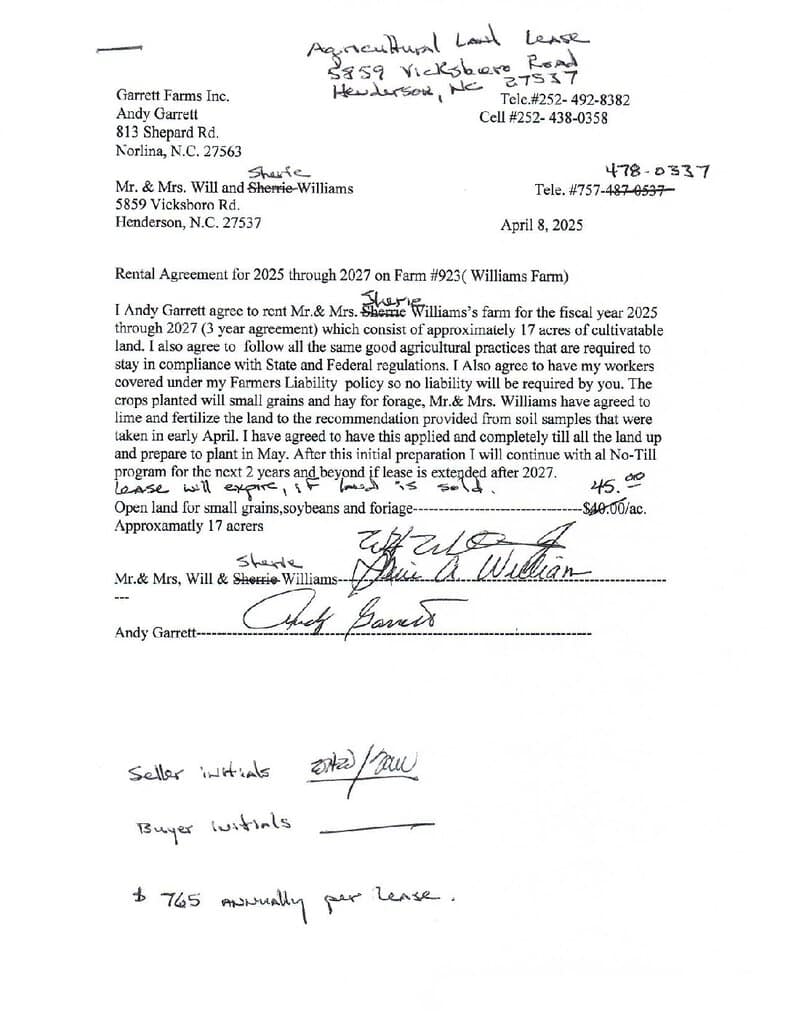 Agricultural Land Lease
5859 Vicksboro Road
Henderson, NC 27537
Garrett Farms Inc.
Tele.#252- 492-8382
Andy Garrett
Cell #252- 438-0358
813 Shepard Rd.
Norlina, N.C. 27563
Sherie
478-0337
Mr. & Mrs. Will and Sherrie Williams
Tele. #757-487-0537
5859 Vicksboro Rd.
Henderson, N.C. 27537
April 8, 2025
Rental Agreement for 2025 through 2027 on Farm #923( Williams Farm)
Sherie
I Andy Garrett agree to rent Mr.& Mrs. Sherrie Williams's farm for the fiscal year 2025
through 2027 (3 year agreement) which consist of approximately 17 acres of cultivatable
land. I also agree to follow all the same good agricultural practices that are required to
stay in compliance with State and Federal regulations. I Also agree to have my workers
covered under my Farmers Liability policy so no liability will be required by you. The
crops planted will small grains and hay for forage, Mr.& Mrs. Williams have agreed to
lime and fertilize the land to the recommendation provided from soil samples that were
taken in early April. I have agreed to have this applied and completely till all the land up
and prepare to plant in May. After this initial preparation I will continue with al No-Till
program for the next 2 years and beyond if lease is extended after 2027.
lease will expire, if land is sold.
45.00
Open land for small grains,soybeans and foriage--------------------------------$40.00/ac.
Approxamatly 17 acrers
Sherie
Mr.& Mrs, Will & Sherrie Williams--
A. William
---
Andy Garrett
Andy Garrett--------------------------------
Seller initials
Buyer initials
$ 765 annually per lease.